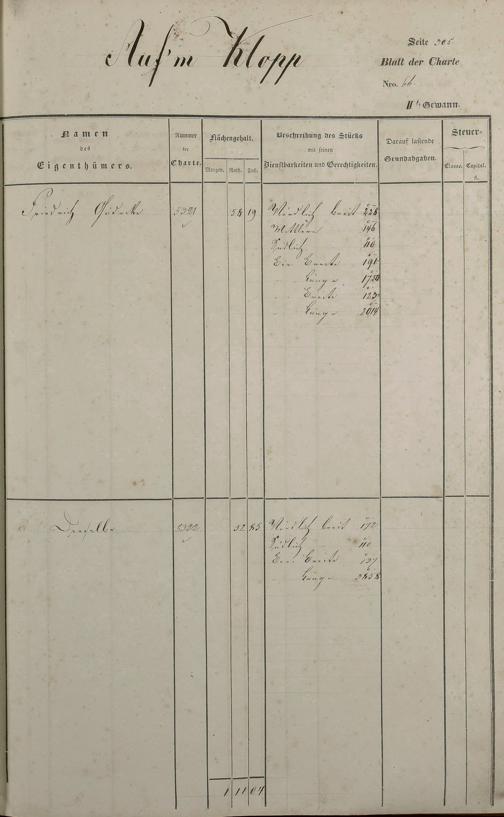 Auf'm Klopp
Seite 305
Blatt der Charte
Nro. 66.
IIte Gewann.
Namen
des
Eigenthümers.
Nummer
der
Charte.
Flächengehalt.
Morgen. Ruth. Fuß.
Beschreibung des Stücks
mit seinen
Dienstbarkeiten und Gerechtigkeiten.
Darauf lastende
Grundabgaben.
Steuer-
Classe. Capital.
fl.
Friedrich 5321 58 19 Nördlich breit 228
Mittlere 146
Südlich
Die Breite 191
Länge
Breite 123
Länge 2014
Derselbe 5322 52 85 Nördlich breit 172
Südlich
Die Breite
Länge 2858
1 11 04